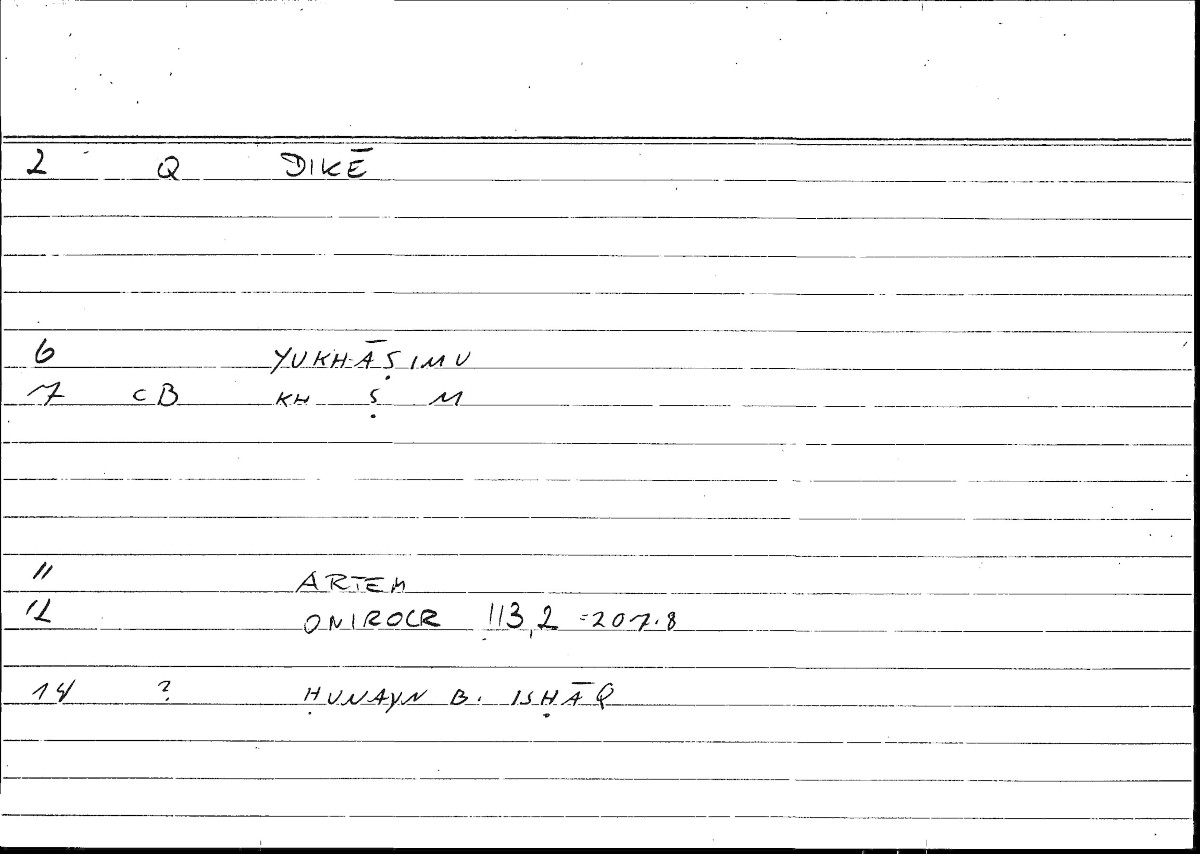 2 Q DIKĒ
6 YUKHĀṢIMU
7 CB KH Ṣ M
11 ARTEM
12 ONIROCR 113,2 =207.8
14 ? ḤUNAYN B. ISḤĀQ